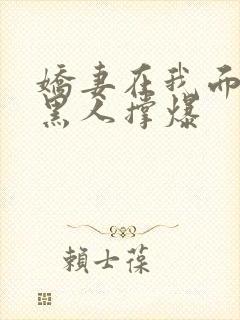 嬌妻在我面
黑人撐爆
賴士葆